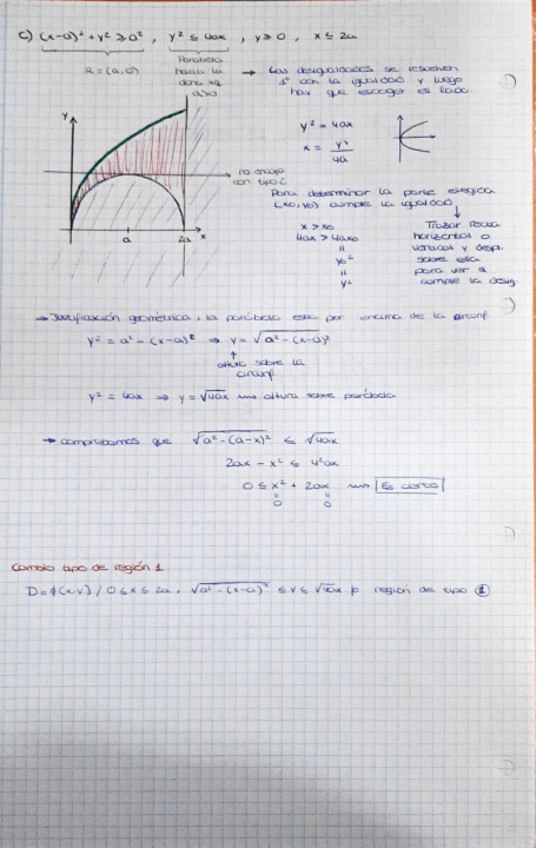 c) (x-a)² + y² ≥ a² , y² ≤ 4ax , y ≥ 0 , x ≤ 2a
R = (a,0)
Parábola
hacia la
a>0
→ Las desigualdades se resuelven
1º con la igualdad y luego
hay que escoger el lado.
y
y² = 4ax
x = y²/4a
no encaja
con tipo 2
a
2a
x
Para determinar la parte elegida
(x₀,y₀) cumple la igualdad
x > x₀
4ax > 4ax₀
=
y₀²
=
y²
Trazar recta
horizontal o
vertical y despl.
sobre ella
para ver si
cumple la desig.
→ Justificación geométrica, la parábola está por encima de la circunf.
y² = a² - (x-a)² ⇒ y = √(a² - (x-a)²)
altura sobre la
circunf.
y² = 4ax ⇒ y = √4ax altura sobre parábola
→ Comprobamos que √(a² - (a-x)²) ≤ √4ax
2ax - x² ≤ 4ax
0 ≤ x² + 2ax Es cierto
0 0
Cambio tipo de región 1
D = {(x,y) / 0 ≤ x ≤ 2a , √(a² - (x-a)²) ≤ y ≤ √4ax } región de tipo 1